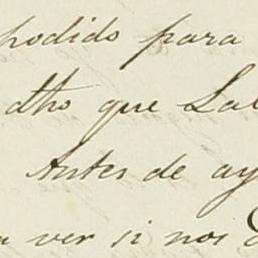 podido para
dho que Lal
Antes de ay
a ver si nos d